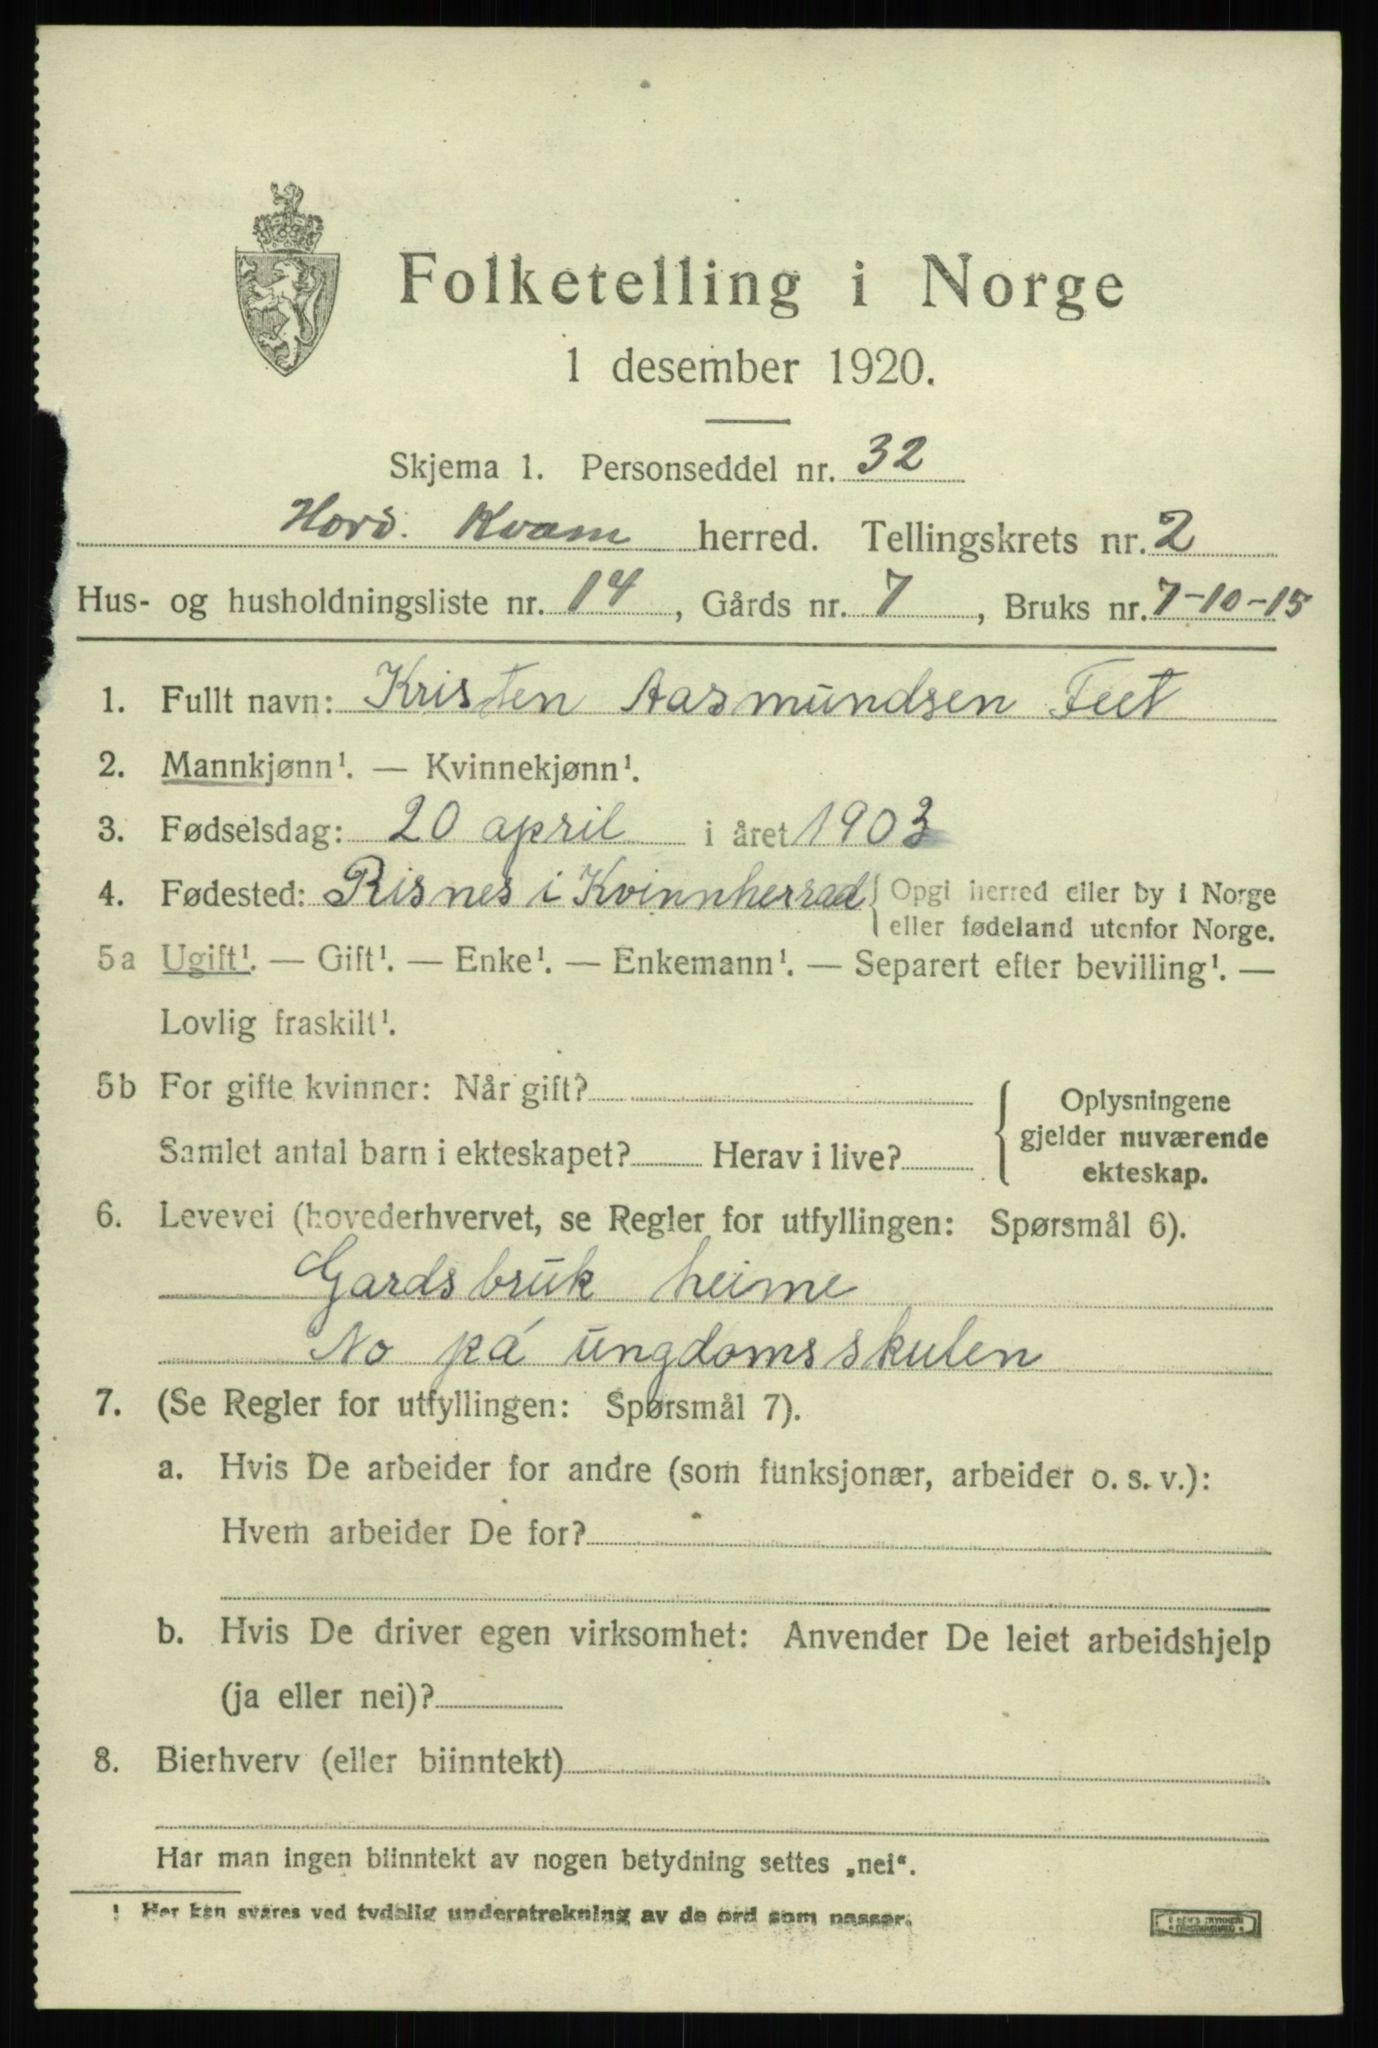 Folketelling i Norge
1 desember 1920.
Skjema 1. Personseddel nr. 32
Hord. Kvam herred. Tellingskrets nr. 2
Hus- og husholdningsliste nr. 14, Gårds nr. 7, Bruks nr. 7-10-15
1. Fullt navn: Kristen Aasmundsen Feet
2. Mannkjønn¹. — Kvinnekjønn¹.
3. Fødselsdag: 20 april i året 1903
4. Fødested: Risnes i Kvinnherrad { Opgi herred eller by i Norge
eller fødeland utenfor Norge.
5a Ugift¹. — Gift¹. — Enke¹. — Enkemann¹. — Separert efter bevilling¹. —
Lovlig fraskilt¹.
5b For gifte kvinner: Når gift?
Samlet antal barn i ekteskapet? Herav i live?
{ Oplysningene
gjelder nuværende
ekteskap.
6. Levevei (hovederhvervet, se Regler for utfyllingen: Spørsmål 6).
Gardsbruk heime
No på ungdomsskulen
7. (Se Regler for utfyllingen: Spørsmål 7).
a. Hvis De arbeider for andre (som funksjonær, arbeider o. s. v.):
Hvem arbeider De for?
b. Hvis De driver egen virksomhet: Anvender De leiet arbeidshjelp
(ja eller nei)?
8. Bierhverv (eller biinntekt)
Har man ingen biinntekt av nogen betydning settes „nei“.
¹ Her kan svares ved tydelig understrekning av de ord som passer.